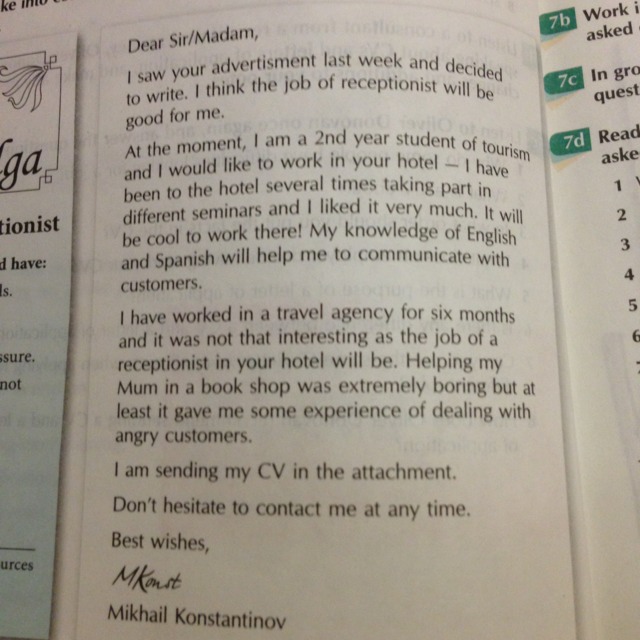 ga
tionist
d have:
ls.
ssure.
not
urces
Dear Sir/Madam,
I saw your advertisment last week and decided
to write. I think the job of receptionist will be
good for me.
At the moment, I am a 2nd year student of tourism
and I would like to work in your hotel – I have
been to the hotel several times taking part in
different seminars and I liked it very much. It will
be cool to work there! My knowledge of English
and Spanish will help me to communicate with
customers.
I have worked in a travel agency for six months
and it was not that interesting as the job of a
receptionist in your hotel will be. Helping my
Mum in a book shop was extremely boring but at
least it gave me some experience of dealing with
angry customers.
I am sending my CV in the attachment.
Don't hesitate to contact me at any time.
Best wishes,
MKonst
Mikhail Konstantinov
7b Work i
asked
7c In gro
quest
7d Read
aske
1
2
3
4
5
6